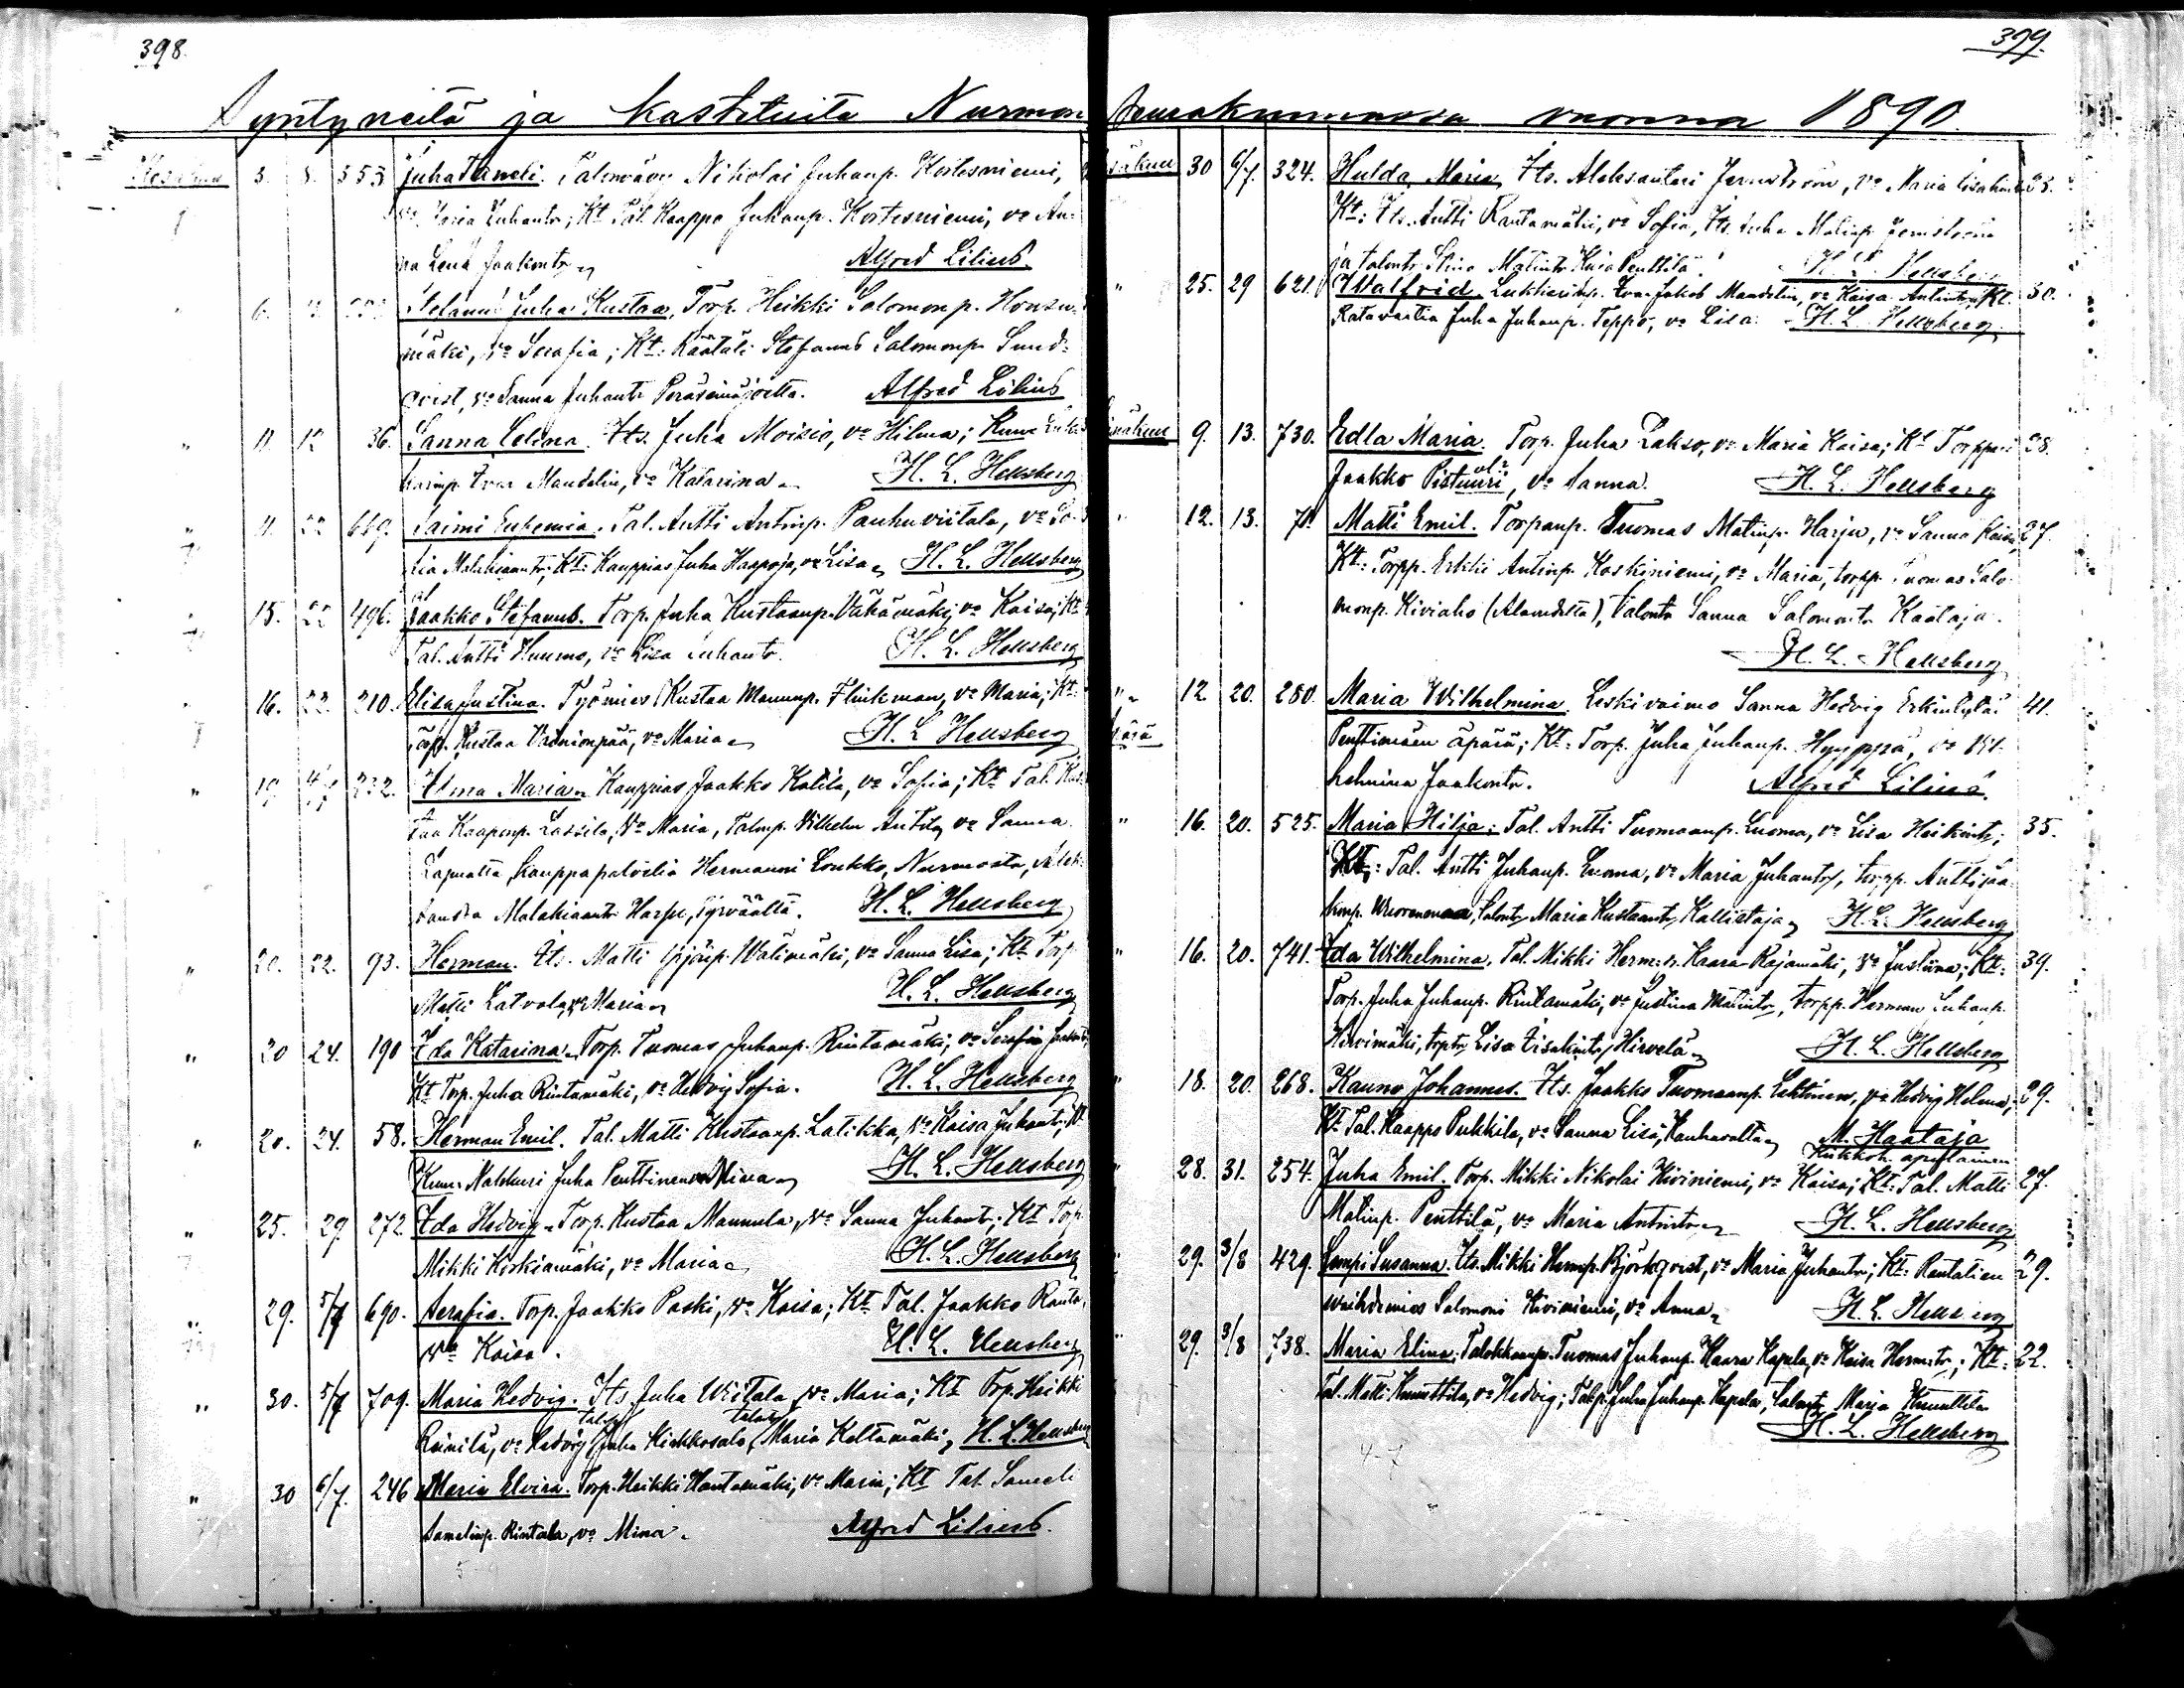 398.
Syntyneitä ja kastetuita Nurmon
3. 8. 553 Juha Taneli. Talonvävy Nikolai Juhanp. Kortesniemi,
Juhantr; Kt Tal. Kaappo Juhanp. Kortesniemi, vo An-
na Leena Jaakontr
Alfred Lilius.
6. Juha Kustaa, Torp. Heikki Salomonp. Honsu-
mäki, vo Serafia; Kt: Räätäli Stefanus Salomonp. Sund-
qvist, vo Sanna Juhantr Peräseinäjoelta. Alfred Lilius
11 12 36. Sanna Celina. Its. Juha Moisio, vo Hilma; Kum:
harinp. Ivar Mandelin, vo Katarina H. L. Hellsberg
11. 22 669. Saimi Eufemia. Tal. Antti Antinp. Pauhuviitala, vo So-
fia Malakiaantr; Kt: Kauppias Juha Haapoja, vo Lisa H. L. Hellsberg
15. 22 496. Jaakko Stefanus. Torp. Juha Kustaanp. Vähämäki, vo Kaisa; Kt
Tal. Antti Huumo, vo Lisa Juhantr. H. L. Hellsberg
16. 22. 210. Elisa Justina. Työmies Kustaa Mannp. Flinkman, vo Maria; Kt:
Torp. Kustaa Väinionpää, vo Maria H. L. Hellsberg
19 4/7 232. Alma Maria Kauppias Jaakko Katila, vo Sofia; Kt Tal. Kus-
taa Kaaponp. Lassila, vo Maria, Talonp. Vilhelm Antila, vo Sanna
Lapualta, kauppapalvelia Hermanni Loukko, Nurmosta, Alek-
sandra Malakiaantr Harju, Tyrväältä. H. L. Hellsberg
20. 22. 93. Herman. Its. Matti Yrjönp. Välimäki, vo Sanna Lisa; Kt Torp
Matti Latvala, vo Maria H. L. Hellsberg
20 24. 190 Ida Katarina. Torp. Tuomas Juhanp. Rintamäki, vo Serafia
Kt Torp. Juha Rintamäki, vo Hedvig Sofia. H. L. Hellsberg
20. 24. 58. Herman Emil. Tal. Matti Kustaanp. Latikka, vo Kaisa Juhantr; Kt
Kum: Nahkuri Juha Penttinen vo Miina H. L. Hellsberg
25. 29 272 Ida Hedvig Torp. Kustaa Mannula, vo Sanna Juhantr; Kt Torp
Mikki Koskiamäki, vo Maria H. L. Hellsberg
29. 5/7 690. Serafia. Torp. Jaakko Paski, vo Kaisa; Kt Tal. Jaakko Ranta,
vo Kaisa. H. L. Hellsberg
30. 5/7 709. Maria Hedvig. Its Juha Wiitala, vo Maria; Kt Torp. Heikki
Rinilä, vo Hedvig, Juha Kiekkosalo, Maria Keltamäki, H. L. Hellsberg
30 6/7. 246 Maria Elvira. Torp. Heikki Hautamäki, vo Maria; Kt Tal. Sameli
Samelinp. Rintala, vo Mina. Alfred Lilius.
399.
seurakunnassa vuonna 1890.
30 6/7. 324. Hulda Maria, Its. Aleksanteri Jernström, vo Maria 25.
Kt: Its. Antti Rantamäki, vo Sofia, Its. Juha Matinp. Jernström
ja talontr Stina Matintr Penttilä. H. L. Hellsberg
25. 29 621. Walfrid. Lukkarinp. Ivar Jakob Mandelin, vo Kaisa Antintr, Kt. 30.
Ratavartia Juha Juhanp. Teppo, vo Lisa. H. L. Hellsberg
9. 13. 730. Edla Maria. Torp. Juha Lakso, vo Maria Kaisa; Kt Torppari 28.
Jaakko Pistuuri, vo Sanna. H. L. Hellsberg
12. 13. 71. Matti Emil. Torpanp. Tuomas Matinp. Harju, vo Sanna Kaisa, 27.
Kt: Torpp. Erkki Antinp. Koskiniemi, vo Maria, torpp. Tuomas Salo-
monp. Kiviaho (Alavudelta), Talontr Sanna Salomontr Kaataja.
H. L. Hellsberg
12 20. 280. Maria Wilhelmina. Leskivaimo Sanna Hedvig 41.
Penttinäsen äpärä; Kt: Torp. Juha Juhanp. Hyyppä, vo Vil-
helmina Jaakontr. Alfred Lilius.
16. 20. 525. Maria Hilja: Tal. Antti Tuomaanp. Luoma, vo Lisa Heikintr; 35.
Kt: Tal. Antti Juhanp. Luoma, vo Maria Juhantr, torpp. Antti Jaa-
konp. Wuorenmaa, talontr Maria Kustaantr Kallistaja H. L. Hellsberg
16. 20. 741. Ida Wilhelmina, Tal. Mikki Herm: p. Kaara-Rajamäki, vo Justiina; Kt: 39.
Torp. Juha Juhanp. Rintamäki, vo Justina Matintr, torpp. Herman Juhanp.
Hirvimäki, torptr Lisa Hirvelä H. L. Hellsberg
18. 20. 268. Kauno Johannes. Its. Jaakko Tuomaanp. Lehtinen, vo Hedvig Helena; 29.
Kt Tal. Kaappo Pukkila, vo Sanna Lisa, Kauhavalta M. Haataja
Kirkkoh. apulainen
28. 31. 254. Juha Emil. Torp. Mikki Nikolai Kiviniemi, vo Kaisa; Kt: Tal. Matti 27.
Matinp. Penttilä, vo Maria Antintr H. L. Hellsberg
29. 3/8 429. Lempi Susanna. Its. Mikki Hermp. Björkqvist, vo Maria Juhantr; Kt: Rautatien 29.
vaihdemies Salomoni Kiviniemi, vo Anna H. L. Hellsberg
29. 3/8 738. Maria Elina, Talokkaanp. Tuomas Juhanp. Kaara Kapela, vo Kaisa Herm:tr; Kt: 22.
Tal. Matti Knuuttila, vo Hedvig; Talp. Juha Juhanp. Kapela, talontr Maria Knuuttila
H. L. Hellsberg